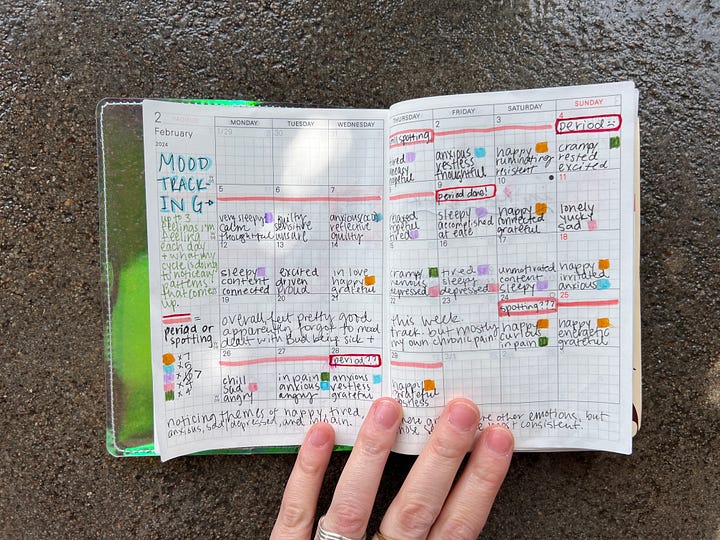 2
February
2024
MONDAY
TUESDAY
WEDNESDAY
THURSDAY
FRIDAY
SATURDAY
SUNDAY
MOOD
TRACK-
ING
up to 3
feelings i'm
feeling
each day
+ what my
cycle is doing
to notice any
patterns
that come
up.
=
period or
spotting
x 7
x 5
1/29
30
spotting
2
anxious
restless
thoughtful
3
happy
ruminating
resistent
4
period
cramp
rested
excited
5
very sleepy
calm
thoughtful
6
guilty
sensitive
unsure
7
anxious
reflective
guilty
hopeful
tired
9
period done!
sleepy
accomplished
at ease
10
happy
connected
grateful
11
lonely
yucky
sad
12
sleepy
content
connected
13
excited
driven
proud
14
in love
happy
grateful
crampy
nervous
depressed
tired
sleepy
depressed
17
unmotivated
content
sleepy
18
happy
irritated
anxious
19
20
21
overall felt pretty good
apparently forgot to mood
dealt with Bud being sick +
22
23
this week.
track. but mostly
my own chronic pain
24
spotting???
happy
curious
in pain
25
happy
energetic
grateful
26
chill
sad
angry
27
in pain
anxious
angry
28
period??
anxious
restless
grateful
happy
grateful
restless
noticing themes of happy, tired,
anxious, sad, depressed, and in pain.
other emotions, but
most consistent.